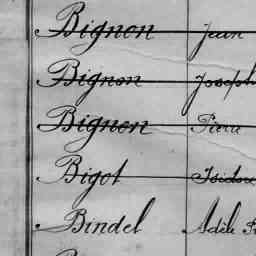 Bignon Jean
Bignon Joseph
Bignon Pierre
Bigot Isidore
Bindel Adèle